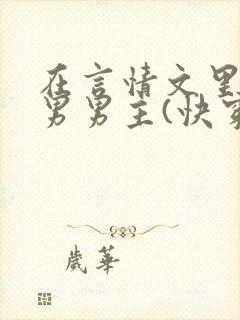 在言情文里
男男主(快穿
歲華